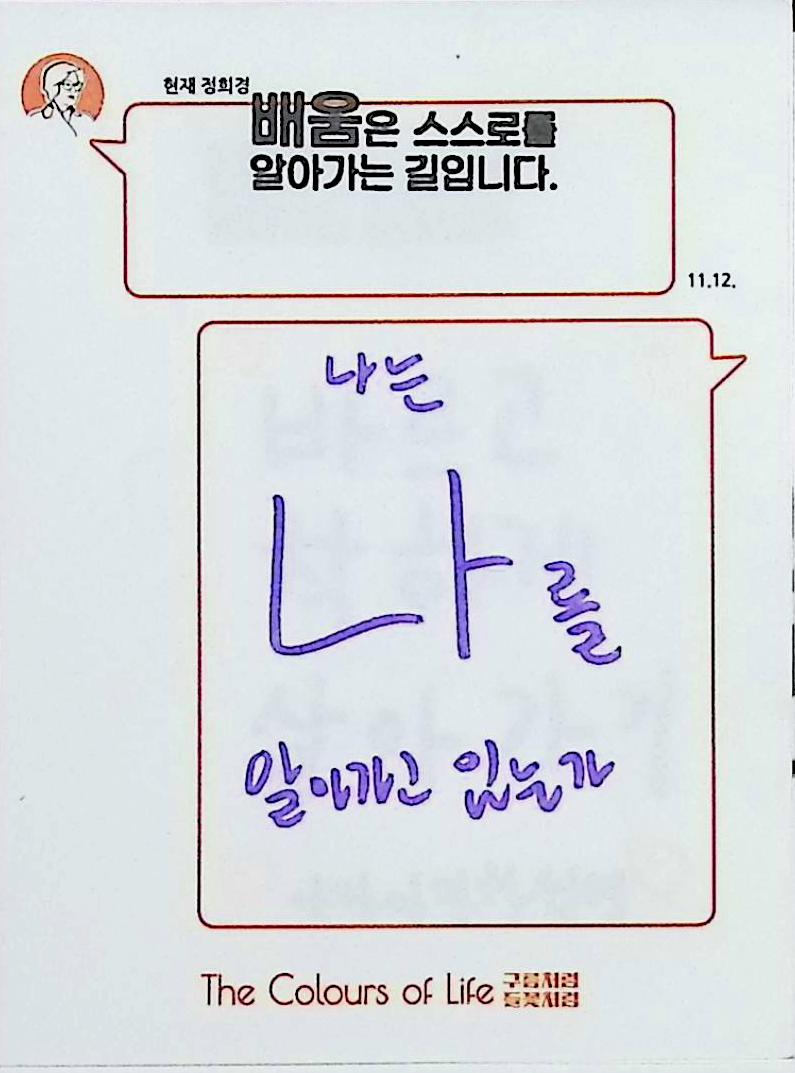 현재 정희경
배움은 스스로를
알아가는 길입니다.
11.12.
나는
나를
알아가고 있는가
The Colours of Life 구름처럼
들꽃처럼